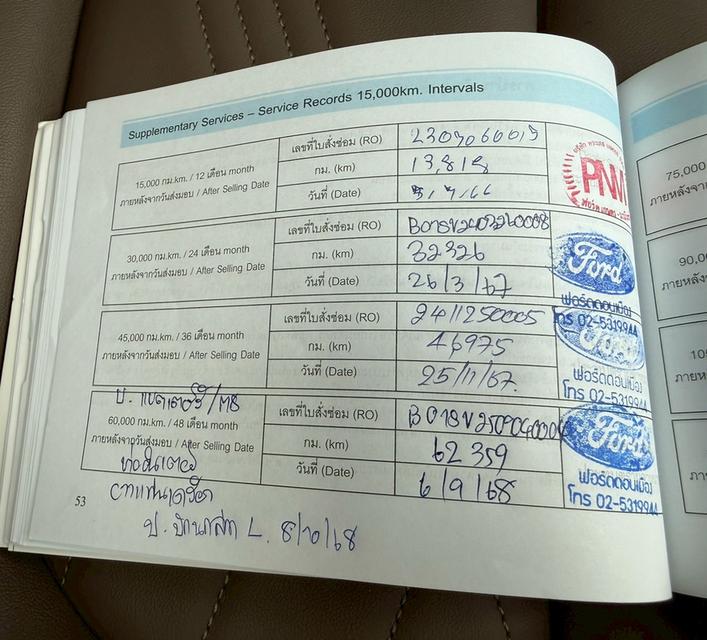 Supplementary Services – Service Records 15,000km. Intervals
15,000 กม.km. / 12 เดือน month
ภายหลังจากวันส่งมอบ / After Selling Date
เลขที่ใบสั่งซ่อม (RO)
กม. (km) 13,818
วันที่ (Date)
PNW
30,000 กม.km. / 24 เดือน month
ภายหลังจากวันส่งมอบ / After Selling Date
เลขที่ใบสั่งซ่อม (RO)
กม. (km) 32326
วันที่ (Date) 26/3/67
Ford
ฟอร์ดดอนเมือง
โทร 02-5319944
45,000 กม.km. / 36 เดือน month
ภายหลังจากวันส่งมอบ / After Selling Date
เลขที่ใบสั่งซ่อม (RO) 2411250005
กม. (km) 46975
วันที่ (Date) 25/11/67.
Ford
ฟอร์ดดอนเมือง
โทร 02-5319944
ป. แบตเตอรี่/
60,000 กม.km. / 48 เดือน month
ภายหลังจากวันส่งมอบ / After Selling Date
เลขที่ใบสั่งซ่อม (RO)
กม. (km) 62 359
วันที่ (Date) 6/9/68
Ford
ฟอร์ดดอนเมือง
โทร 02-5319944
53
ป. L. 8/10/68
75,000
90,0
10